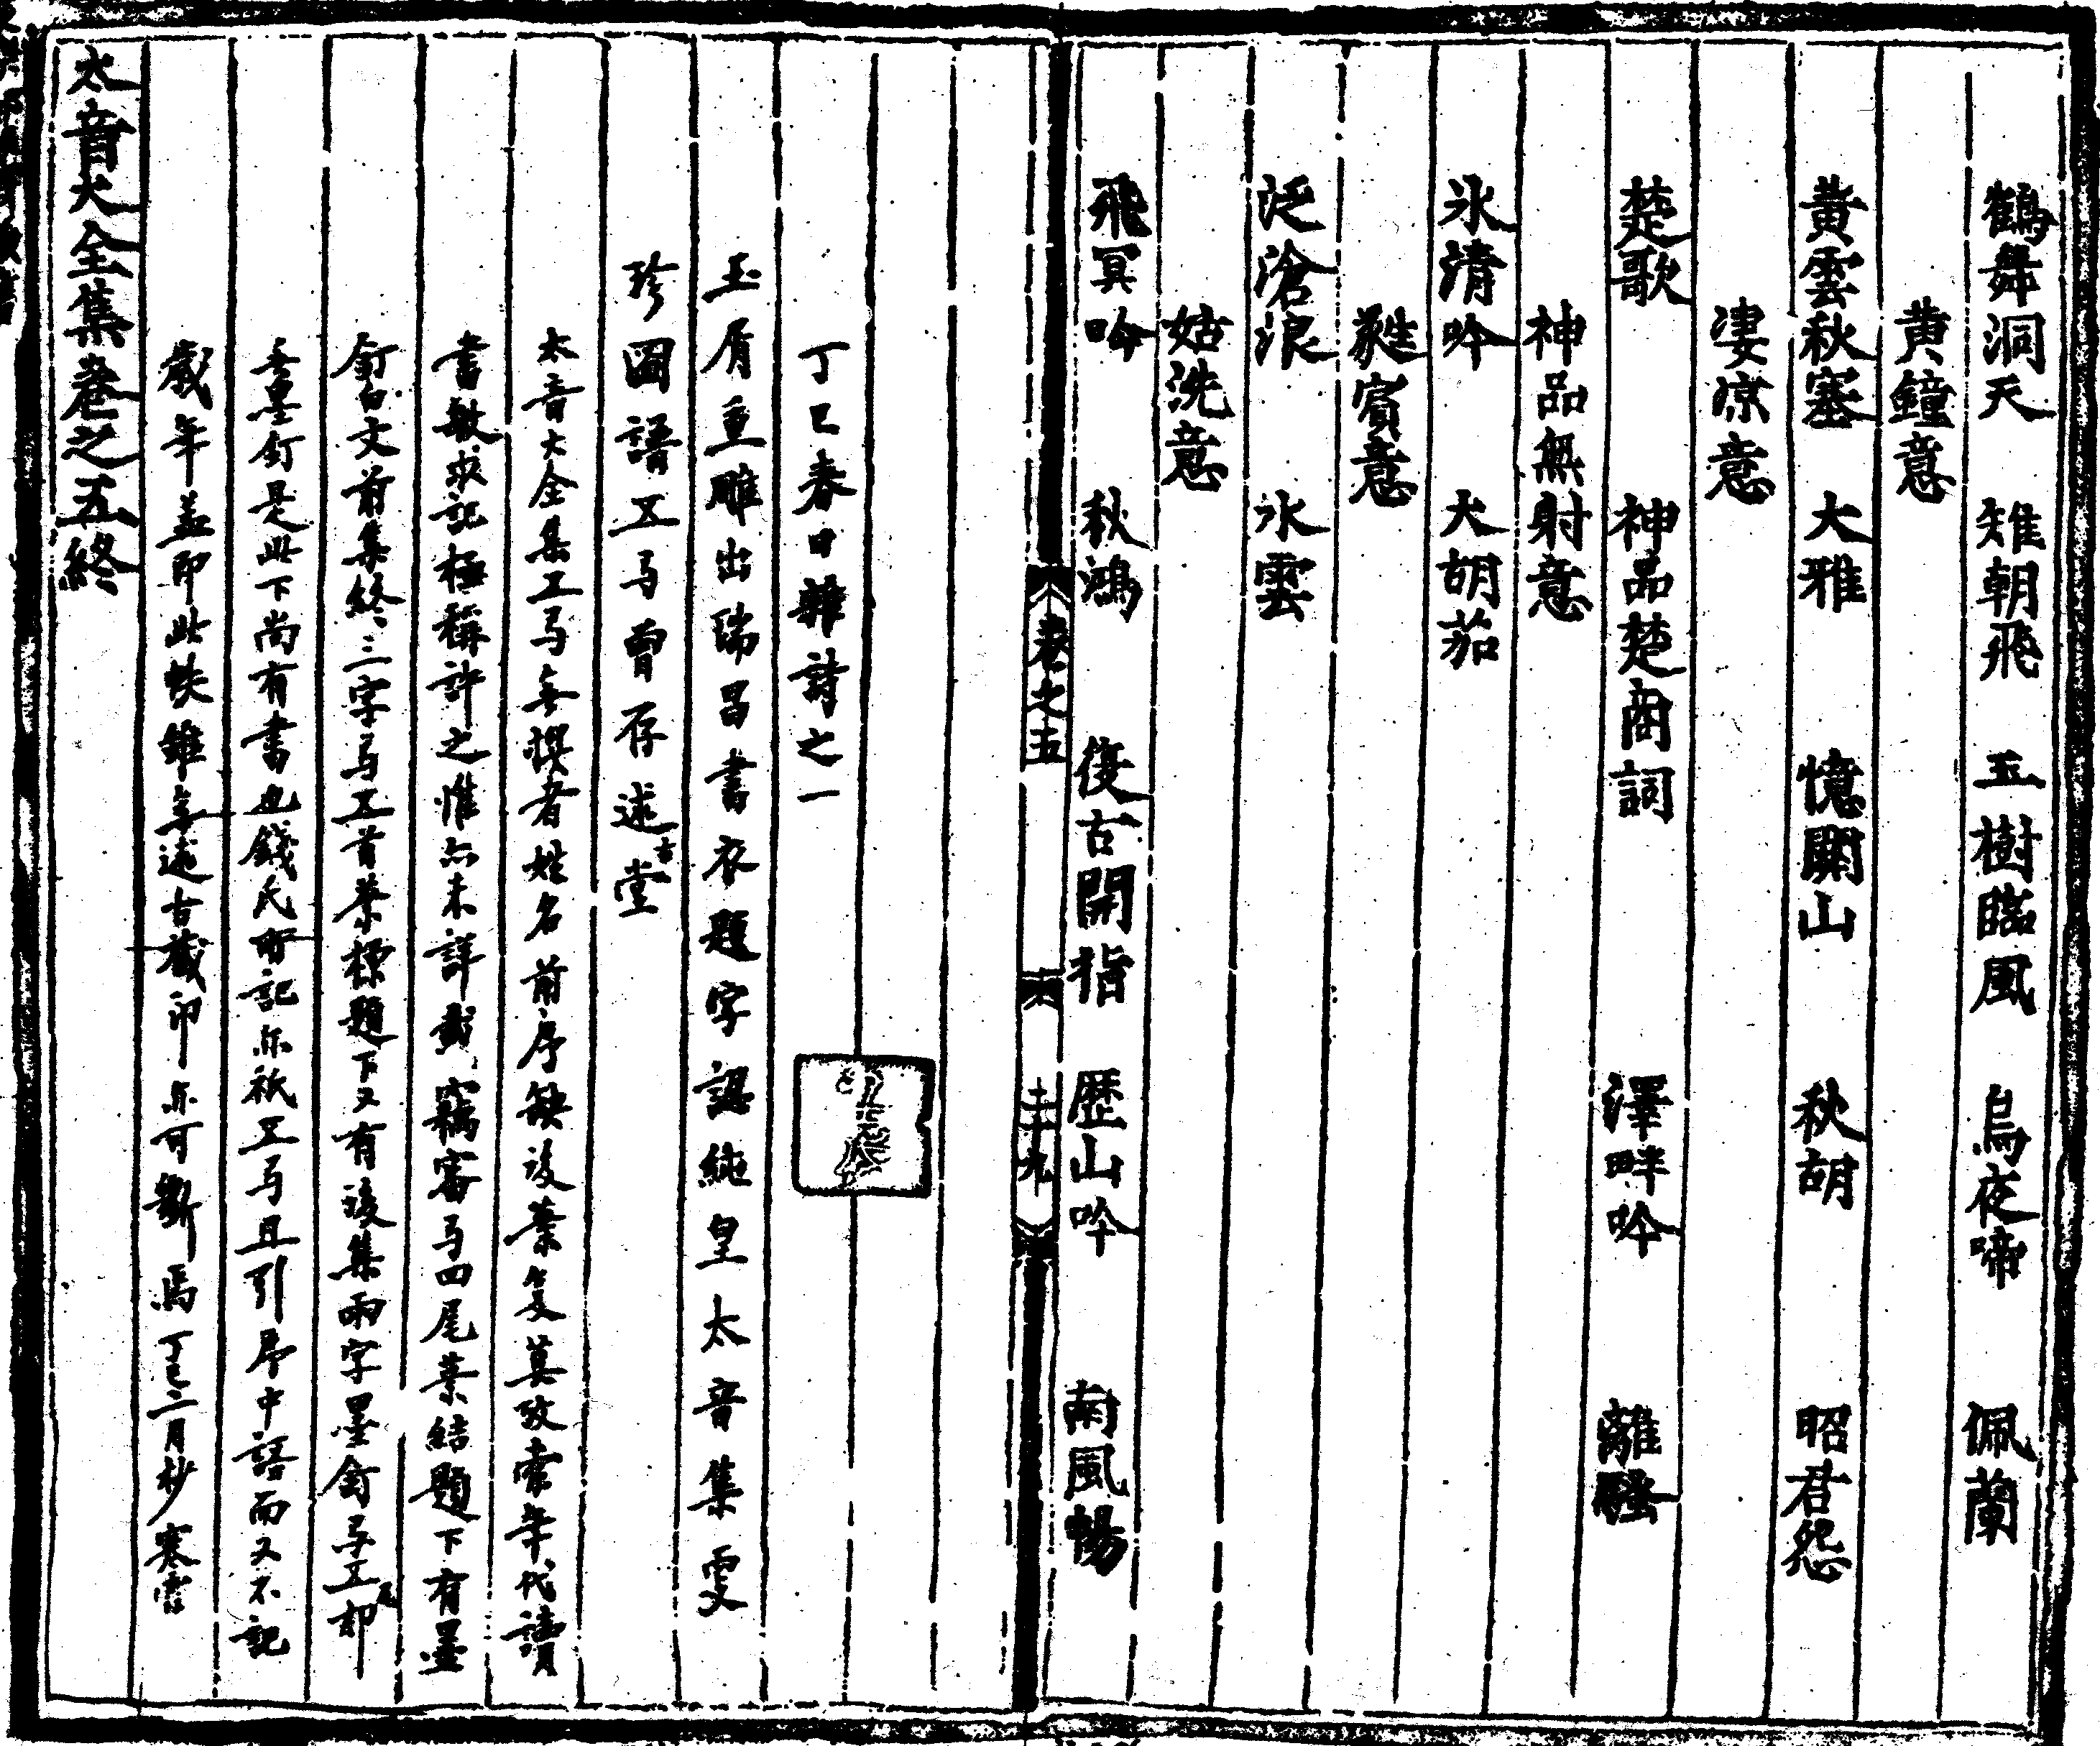 鶴舞洞天 雉朝飛 玉樹臨風 烏夜啼 佩蘭
黄鐘意
黄雲秋塞 大雅 憶關山 秋胡 昭君怨
淒凉意
楚歌 神品楚商詞 澤畔吟 離騷
神品無射意
氷清吟 大胡茄
蕤賓意
泛滄浪 水雲
姑洗意
飛冥吟 秋鴻 復古開指 歷山吟 南風暢
卷之五
二十九
丁巳春日雜詩之一
玉屑重雕出瑞昌書衣題字認純皇太音集雯
珍圖譜五弓曾存述古堂
太音大全集五弓無撰者姓名前序缺後葉無莫攷索年代讀
書敏求記極稱許之惟亦未詳載竊審弓四尾葉結題下有墨
釘白文前集終三字弓五首葉標題下又有後集兩字墨釘弓五尾却
無墨釘是此下尚有書也錢氏所記亦祇五弓且引序中語而又不記
幾年盖即此帙雖無述古藏印亦可斷焉丁巳二月杪寒雲
太音大全集卷之五終